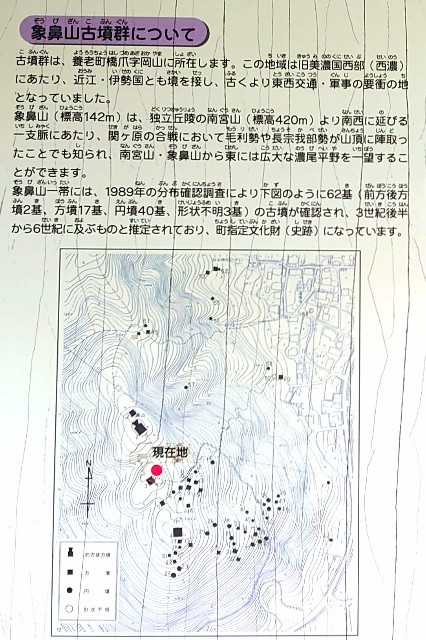 象鼻山古墳群について
古墳群は、養老町橋爪字岡山に所在します。この地域は旧美濃国西部（西濃）
にあたり、近江・伊勢国とも境を接し、古くより東西交通・軍事の要衝の地
となっていました。
象鼻山（標高142m）は、独立丘陵の南宮山（標高420m）より南西に延びる
一支脈にあたり、関ヶ原の合戦において毛利勢や長宗我部勢が山頂に陣取っ
たことでも知られ、南宮山・象鼻山から東には広大な濃尾平野を一望するこ
とができます。
象鼻山一帯には、1989年の分布確認調査により下図のように62基（前方後方
墳2基、方墳17基、円墳40基、形状不明3基）の古墳が確認され、3世紀後半
から6世紀に及ぶものと推定されており、町指定文化財（史跡）になっています。
現在地
前方後方墳
方墳
円墳
形状不明